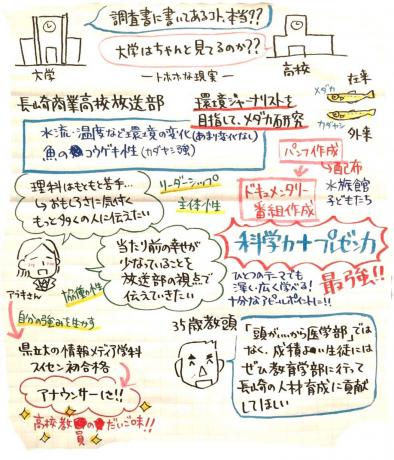 調査書に書いてあるコト、本当??
大学はちゃんと見てるのか??
大学
ートホホな現実ー
高校
長崎商業高校放送部
環境ジャーナリストを
目指して、メダカ研究
メダカ
在来
カダヤシ
外来
水流・温度など環境の変化(あまり変化なし)
魚のコウゲキ性(カダヤシ強)
パンフ作成
配布
水族館
子どもたち
ドキュメンタリー
番組作成
理科はもともと苦手…
おもしろさに気付く
もっと多くの人に伝えたい
リーダーシップ
主体性
科学力+プレゼン力
最強!!
ひとつのテーマでも
深く・広く学べる!
十分なアピールポイントに!!
当たり前の幸せが
少なっていることを
放送部の視点で
伝えていきたい
アラキさん
協働の性
自分の強みを生かす
県立大の情報メディア学科
スイセン初合格
アナウンサーに!!
高校教員のだいご味!!
35歳教頭
「頭がいいから医学部」では
なく、成績よい生徒には
ぜひ教育学部に行って
長崎の人材育成に貢献
してほしい